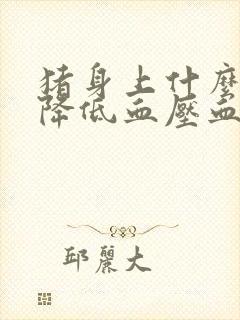 猪身上什麼
降低血壓血
邱麗大